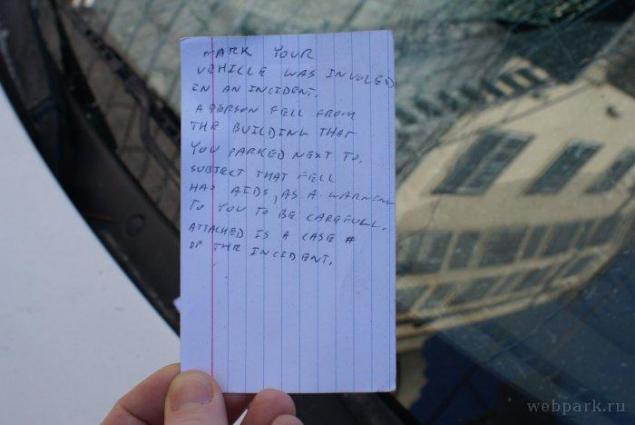 MARK YOUR
VEHICLE WAS INVOLED
IN AN INCIDENT.
A PERSON FELL FROM
THE BUILDING THAT
YOU PARKED NEXT TO.
SUBJECT THAT FELL
HAD AIDS, AS A WARNING
TO YOU TO BE CAREFULL.
ATTACHED IS A CASE #
OF THE INCIDENT.
webpark.ru